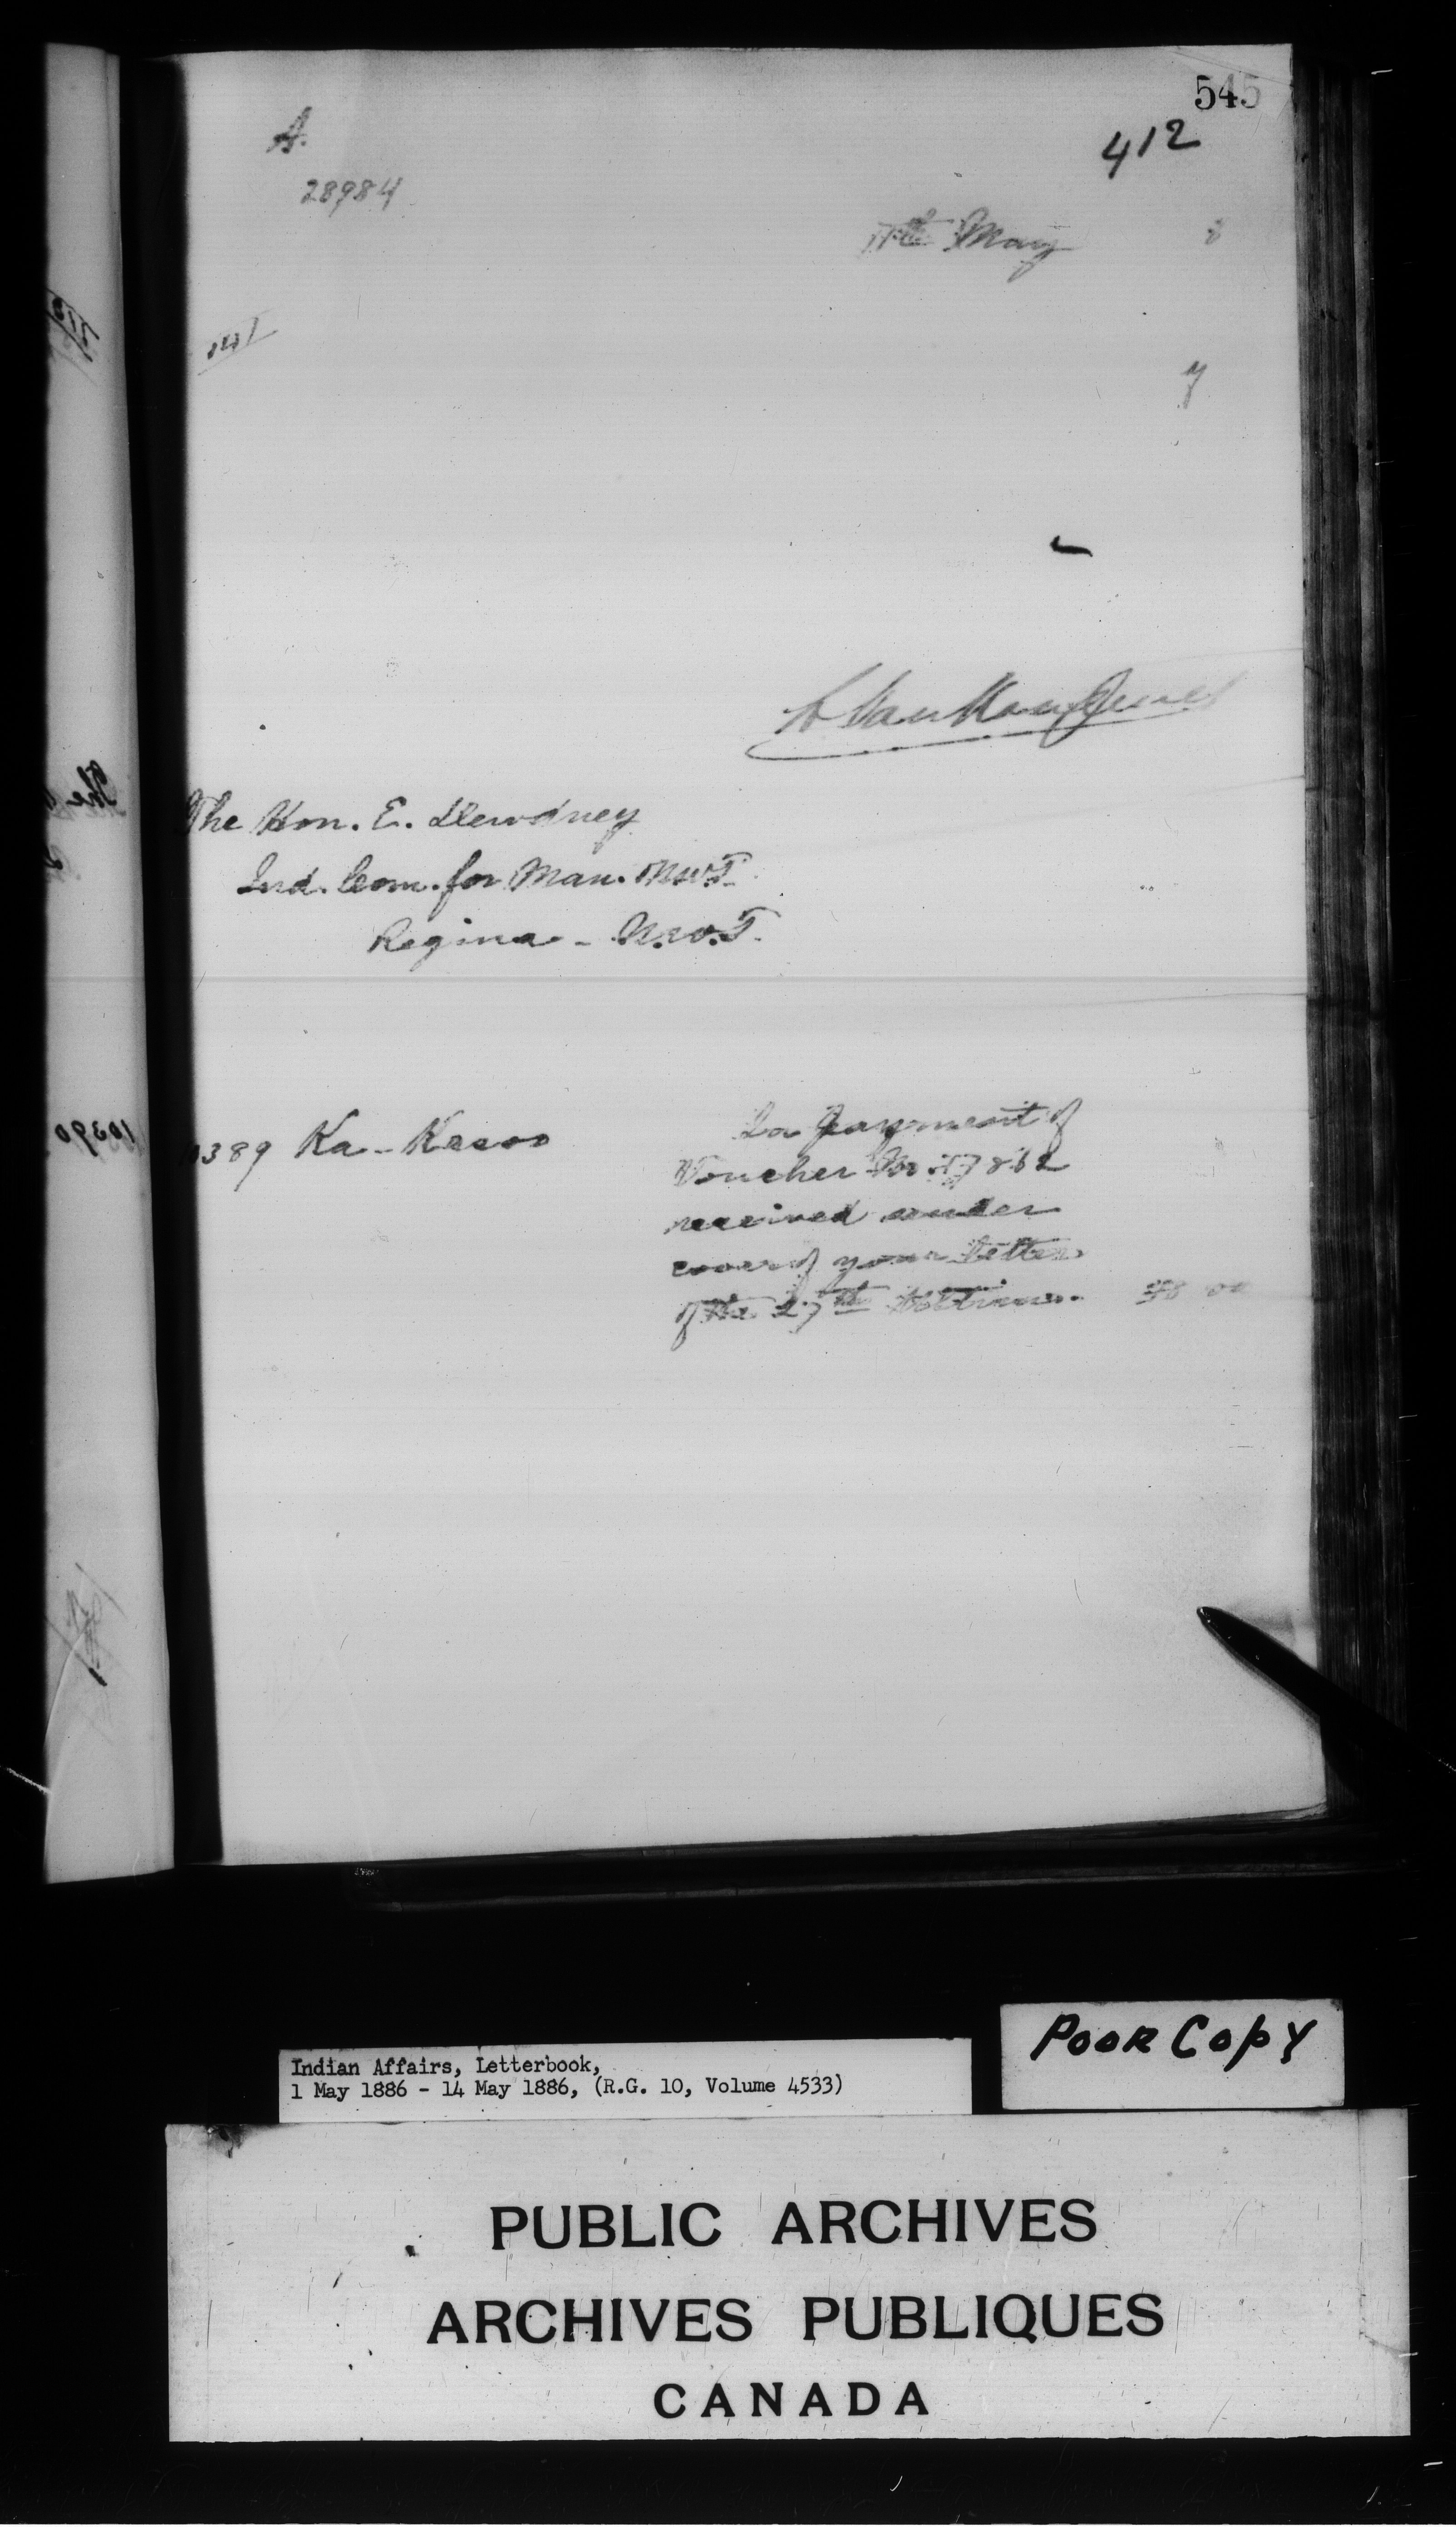 545
412
A.
28984
11th May
L. VanKoughnet
The Hon. E. Dewdney
Ind. Com. for Man. & N.W.T.
Regina - N.W.T.
10389 Ka-Keeoo
In payment of
Voucher No.
received under
cover of your letter
of the 27th Ultimo.
Indian Affairs, Letterbook,
1 May 1886 - 14 May 1886, (R.G. 10, Volume 4533)
POOR COPY
PUBLIC ARCHIVES
ARCHIVES PUBLIQUES
CANADA